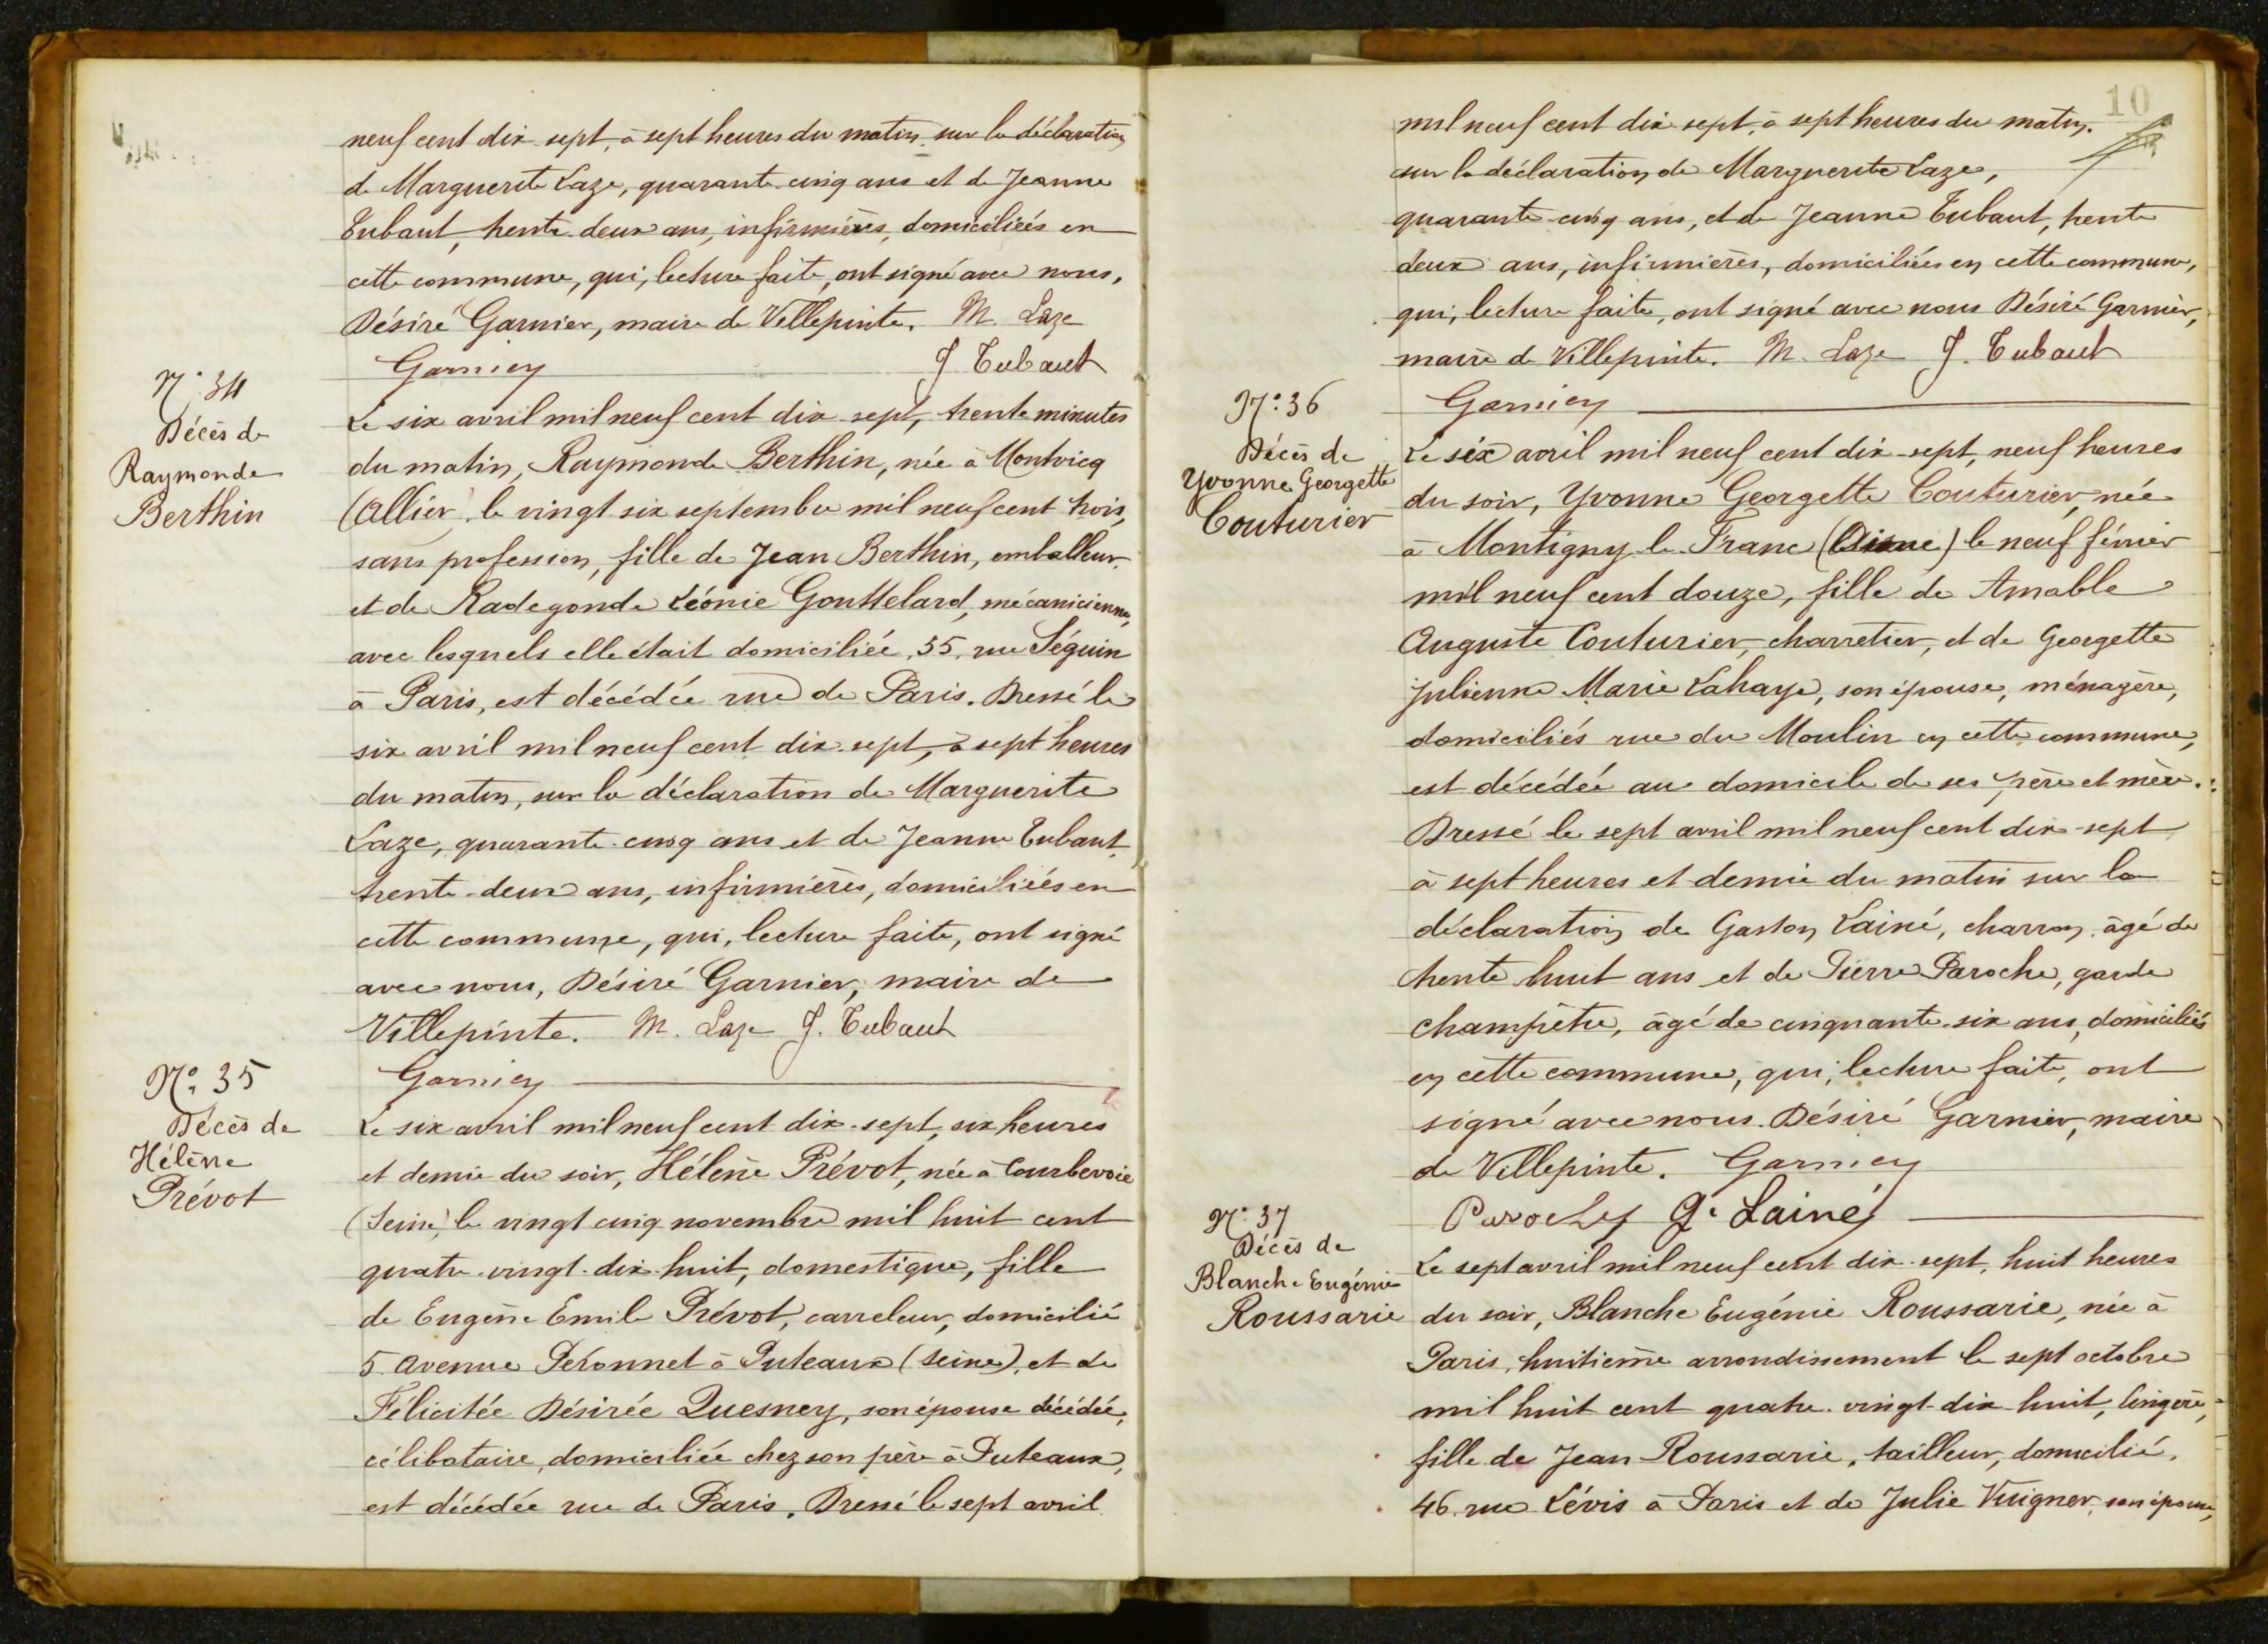 neuf cent dix sept, à sept heures du matin sur la déclaration
de Marguerite Laze, quarante cinq ans et de Jeanne
Tubaut, trente deux ans, infirmières, domiciliées en
cette commune, qui, lecture faite, ont signé avec nous,
Désiré Garnier, maire de Villepinte. M. Laze
Garnier J Tubaut
N° 34
Décès de
Raymonde
Berthin
Le six avril mil neuf cent dix sept, trente minutes
du matin, Raymonde Berthin, née à Montvicq
(Allier), le vingt six septembre mil neuf cent trois,
sans profession, fille de Jean Berthin, emballeur
et de Radegonde Léonie Gouttelard, mécanicienne,
avec lesquels elle était domiciliée, 35, rue Séguin
à Paris, est décédée rue de Paris. Dressé le
six avril mil neuf cent dix sept, à sept heures
du matin, sur la déclaration de Marguerite
Laze, quarante-cinq ans et de Jeanne Tubaut,
trente-deux ans, infirmières, domiciliées en
cette commune, qui, lecture faite, ont signé
avec nous, Désiré Garnier, maire de
Villepinte. M. Laze J. Tubaut
Garnier
N° 35
Décès de
Hélène
Prévot
Le six avril mil neuf cent dix-sept, six heures
et demie du soir, Hélène Prévot, née à Courbevoie
(Seine) le vingt cinq novembre mil huit cent
quatre-vingt-dix-huit, domestique, fille
de Eugène Emile Prévot, carreleur, domicilié
5 Avenue Péronnet à Puteaux (Seine), et de
Félicitée Désirée Quesney, son épouse décédée,
célibataire, domiciliée chez son père à Puteaux,
est décédée rue de Paris. Dressé le sept avril
10
mil neuf cent dix sept, à sept heures du matin.
sur la déclaration de Marguerite Laze,
quarante-cinq ans, et de Jeanne Tubaut, trente
deux ans, infirmières, domiciliées en cette commune,
qui, lecture faite, ont signé avec nous Désiré Garnier,
maire de Villepinte. M. Laze J. Tubaut
Garnier
N° 36
Décès de
Yvonne Georgette
Couturier
Le six avril mil neuf cent dix-sept, neuf heures
du soir, Yvonne Georgette Couturier, née
à Montigny le Franc (Aisne) le neuf février
mil neuf cent douze, fille de Amable
Auguste Couturier, charretier, et de Georgette
Julienne Marie Lahaye, son épouse, ménagère,
domiciliés rue du Moulin en cette commune,
est décédée au domicile de ses père et mère.
Dressé le sept avril mil neuf cent dix-sept
à sept heures et demie du matin sur la
déclaration de Gaston Lainé, charron, âgé de
trente huit ans et de Pierre Paroche, garde
champêtre, âgé de cinquante-six ans, domiciliés
en cette commune, qui, lecture faite, ont
signé avec nous. Désiré Garnier, maire
de Villepinte. Garnier
Paroche G. Lainé
N° 37
Décès de
Blanche Eugénie
Roussarie
Le sept avril mil neuf cent dix-sept, huit heures
du soir, Blanche Eugénie Roussarie, née à
Paris, huitième arrondissement le sept octobre
mil huit cent quatre-vingt-dix-huit, lingère,
fille de Jean Roussarie, tailleur, domicilié,
46 rue Lévis à Paris et de Julie Vuigner, son épouse,